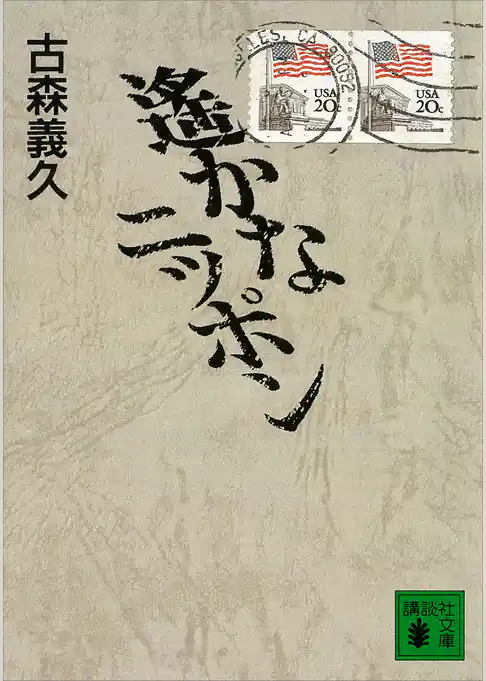 古森義久
遙かな
ニッポン
LES, CA 90052
USA
20c
USA
20c
講談社
文庫